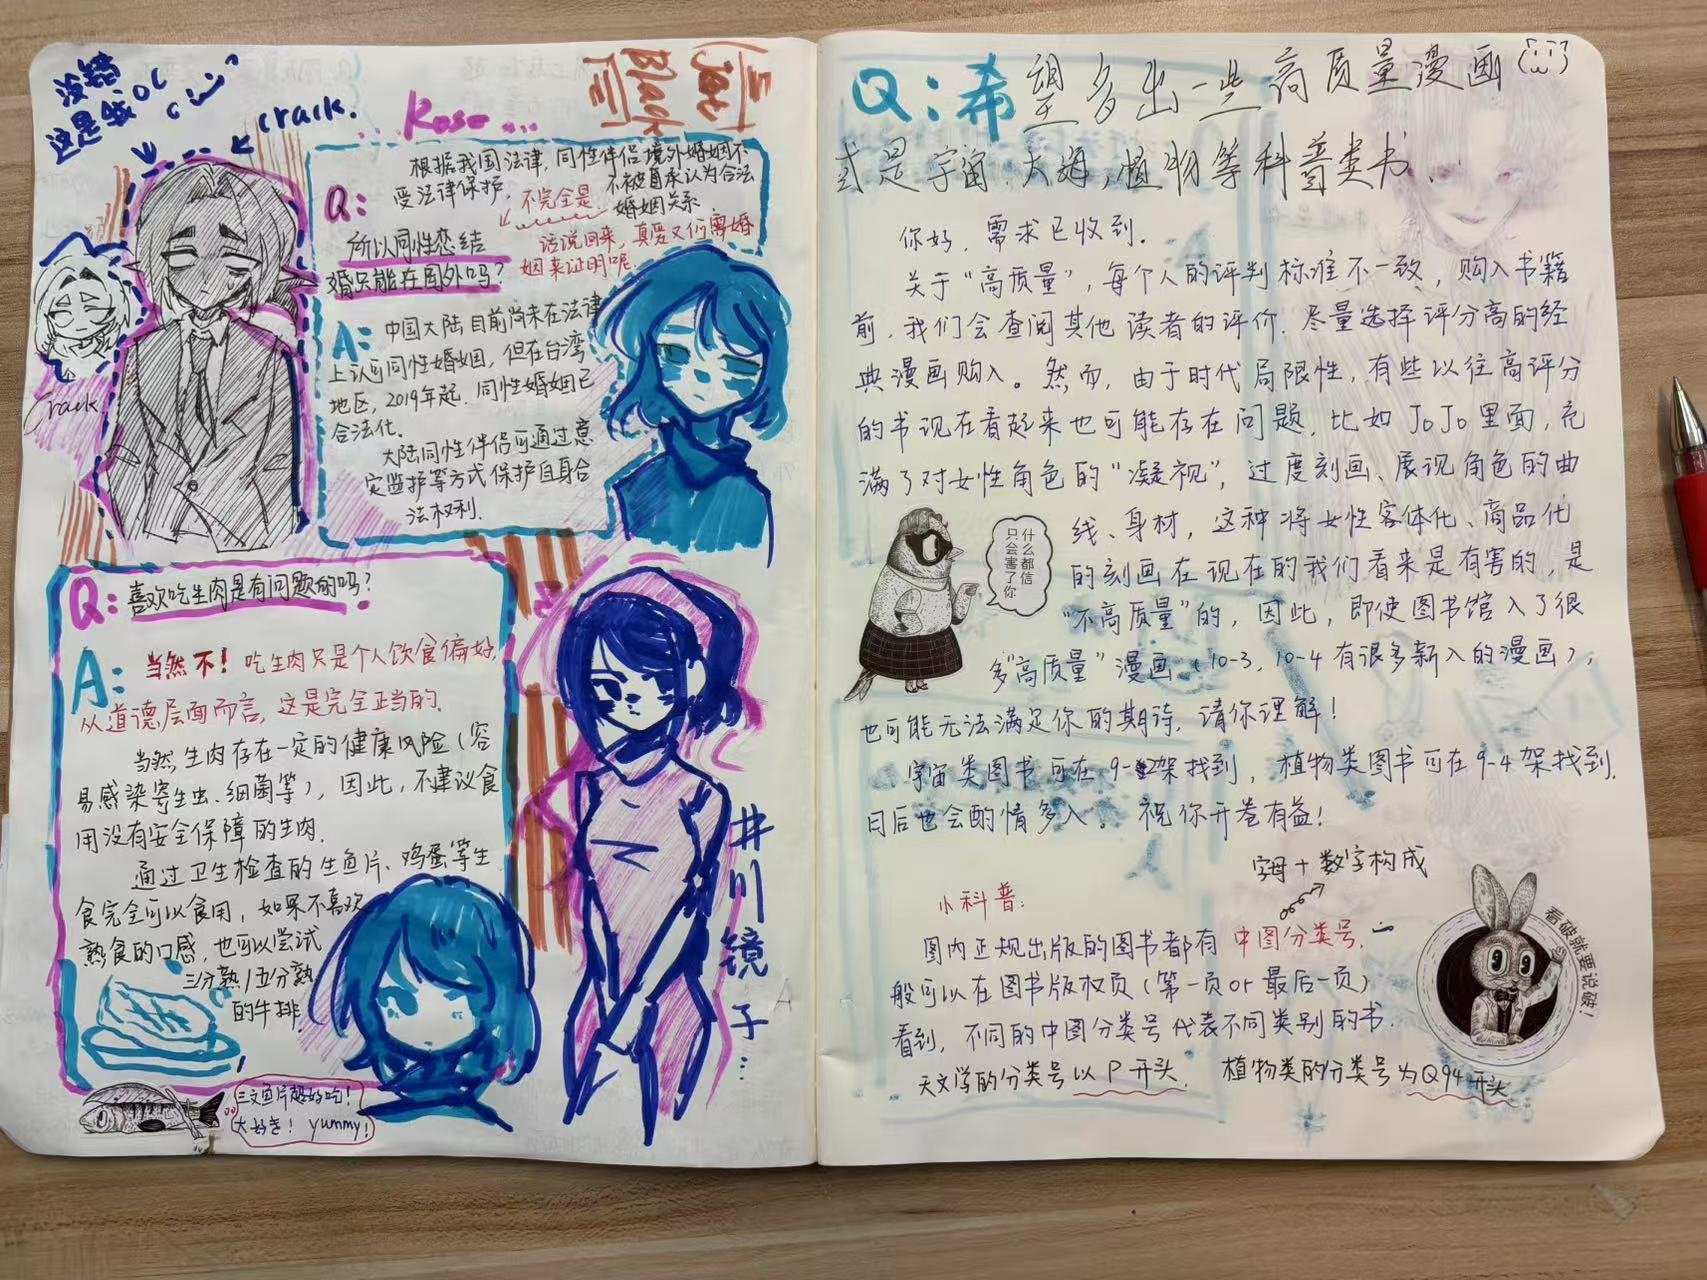 没错
这是我OC
crack.
Rose...
Joe
Black
Crack
根据我国法律,同性伴侣境外婚姻不
受法律保护.
不被国家认为合法
婚姻关系.
不完全是.
话说回来,真爱又何需婚
姻来证明呢.
Q:
所以同性恋结
婚只能在国外吗?
A:
中国大陆目前尚未在法律
上认可同性婚姻,但在台湾
地区,2019年起,同性婚姻已
合法化.
大陆同性伴侣可通过意
定监护等方式保护自身合
法权利.
Q:喜欢吃生肉是有问题的吗?
A:当然不!吃生肉只是个人饮食偏好,
从道德层面而言,这是完全正当的.
当然,生肉存在一定的健康风险(容
易感染寄生虫、细菌等),因此,不建议食
用没有安全保障的生肉.
通过卫生检查的生鱼片、鸡蛋等生
食完全可以食用,如果不喜欢
熟食的口感,也可以尝试
三分熟/五分熟
的牛排
三文鱼片超好吃!
大好き! yummy!
井川镜子...
Q:希望多出一些高质量漫画
或是宇宙、大海,植物等科普类书.
你好,需求已收到.
关于“高质量”,每个人的评判标准不一致,购入书籍
前,我们会查阅其他读者的评价.尽量选择评分高的经
典漫画购入。然而,由于时代局限性,有些以往高评分
的书现在看起来也可能存在问题,比如JOJO里面,充
满了对女性角色的“凝视”,过度刻画、展现角色的曲
线、身材,这种将女性客体化、商品化
的刻画在现在的我们看来是有害的,是
“不高质量”的,因此,即使图书馆入了很
多“高质量”漫画(10-3,10-4有很多新入的漫画),
也可能无法满足你的期待,请你理解!
什么都信
只会害了你
宇宙类图书可在9-2架找到,植物类图书可在9-4架找到.
日后也会酌情多入。祝你开卷有益!
字母+数字构成
小科普:
国内正规出版的图书都有中图分类号.一
般可以在图书版权页(第一页or最后一页)
看到,不同的中图分类号代表不同类别的书.
天文学的分类号以P开头. 植物类的分类号为Q94开头
看破就要说破!